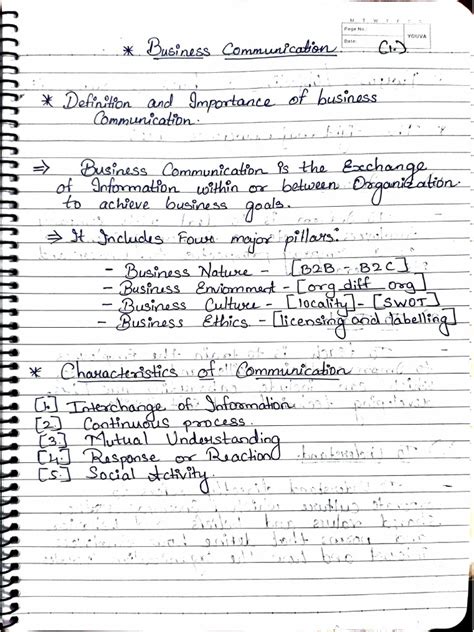 M T W T F S S
Page No.:
Date:
YOUVA
* Business Communication (1.)
* Definition and Importance of business
Communication.
⇒ Business Communication is the Exchange
of Information within or between Organization
to achieve business goals.
⇒ It Includes Four major pillars:
- Business Nature - [B2B - B2C]
- Business Enviornment - [org diff org]
- Business Culture - [locality] - [SWOT]
- Business Ethics - [licensing and labelling]
* Characteristics of Communication
[1.] Interchange of Information
[2.] Continuous process.
[3.] Mutual Understanding
[4.] Response or Reaction
[5.] Social Activity.